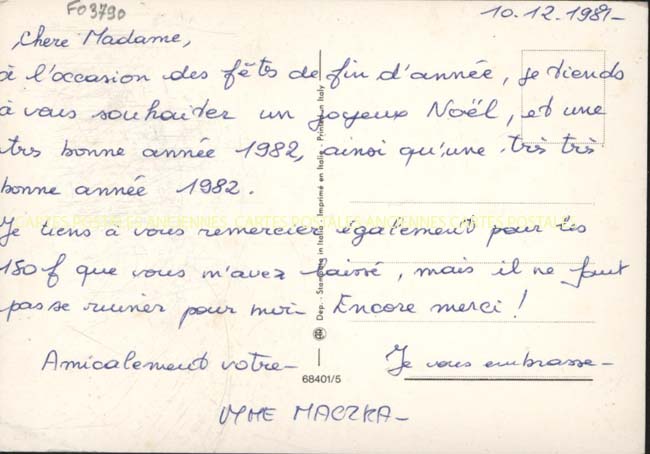 F03790
10.12.1981-
Chere Madame,
à l'occasion des fêtes de fin d'année, je tiends
à vous souhaiter un joyeux Noël, et une
trés bonne année 1982, ainsi qu'une très très
bonne année 1982.
CARTES POSTALES ANCIENNES CARTES POSTALES ANCIENNES CARTES POSTALES
Je tiens à vous remercier également pour les
150f que vous m'avez laissé, mais il ne faut
pas se ruiner pour moi- Encore merci!
Amicalement votre- Je vous embrasse-
MACZKA-
Dep. - Stampato in Italia - Imprimé en Italie - Printed in Italy
68401/5